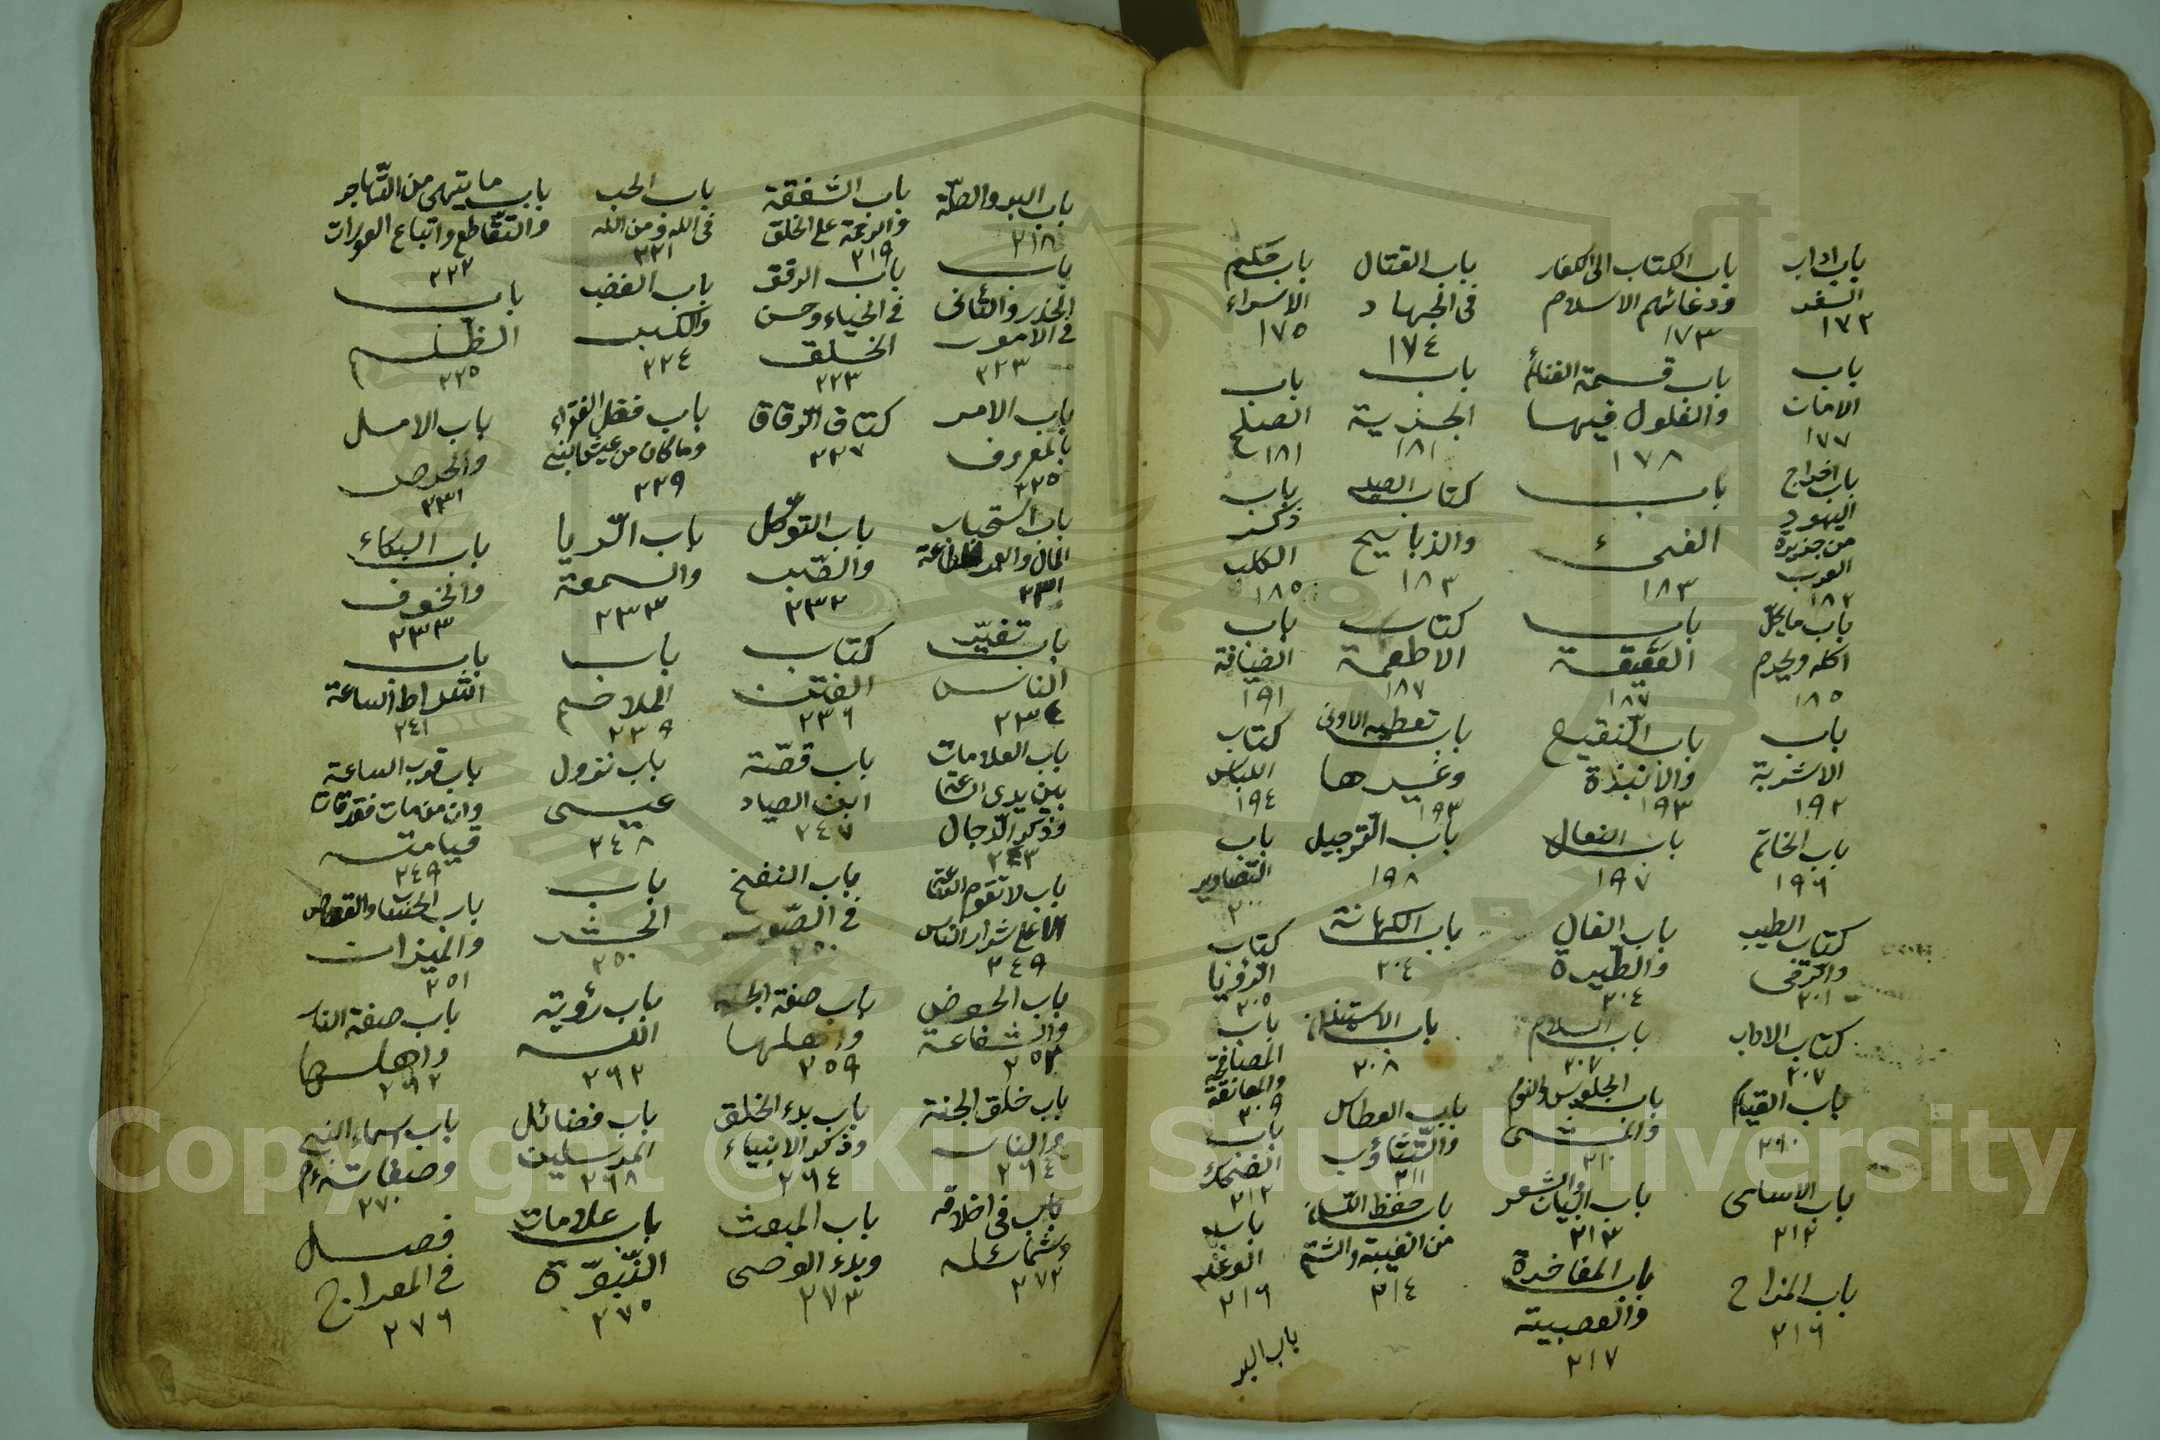 باب اداب السفر ١٧٢
باب الكتاب الى الكفار ودعائهم الاسلام ١٧٣
باب القتال فى الجهاد ١٧٤
باب حكم الاسراء ١٧٥
باب الامان ١٧٧
باب قسمة الغنائم والغلول فيها ١٧٨
باب الجزية ١٨١
باب الصلح ١٨١
باب اخراج اليهود من جزيرة العرب ١٨٢
باب الفىء ١٨٣
كتاب الصيد والذبايح ١٨٣
باب ذكر الكلب ١٨٥
باب ما يحل اكله ويحرم ١٨٥
باب العقيقة ١٨٧
كتاب الاطعمة ١٨٧
باب الضيافة ١٩١
باب الاشربة ١٩٢
باب النقيع والانبذة ١٩٣
باب تغطيه الاوانى وغيرها ١٩٣
كتاب اللباس ١٩٤
باب الخاتم ١٩٦
باب النعال ١٩٧
باب الترجيل ١٩٨
باب التصاوير ٢٠٠
كتاب الطب والرقى ٢٠١
باب الفال والطيرة ٢٠٤
باب الكهانة ٢٠٤
كتاب الرؤيا ٢٠٥
كتاب الاداب ٢٠٧
باب السلام ٢٠٧
باب الاستئذان ٢٠٨
باب المصافحة والمعانقة ٢٠٩
باب القيام ٢١٠
باب الجلوس والنوم والمشى ٢١٠
باب العطاس والتثاؤب ٢١١
باب الضحك ٢١٢
باب الاسامى ٢١٢
باب البيان والشعر ٢١٣
باب حفظ اللسان من الغيبة والشتم ٢١٤
باب الوعد ٢١٦
باب المزاح ٢١٦
باب المفاخرة والعصبية ٢١٧
باب البر
باب البر والصلة ٢١٨
باب الشفقة والرحمة على الخلق ٢١٩
باب الحب فى الله ومن الله ٢٢١
باب ما ينهى من التهاجر والتقاطع واتباع العورات ٢٢٢
باب الحذر والتأنى فى الامور ٢٢٣
باب الرفق فى الحياء وحسن الخلق ٢٢٣
باب الغضب والكبر ٢٢٤
باب الظلم ٢٢٥
باب الامر بالمعروف ٢٢٥
كتاب الرقاق ٢٢٧
باب فضل الفقراء وما كان من عيش النبى ٢٢٩
باب الامل والحرص ٢٣١
باب استحباب المال والعمر للطاعة ٢٣١
باب التوكل والصبر ٢٣٢
باب الريا والسمعة ٢٣٣
باب البكاء والخوف ٢٣٣
باب تغير الناس ٢٣٤
كتاب الفتن ٢٣٦
باب الملاحم ٢٣٩
باب اشراط الساعة ٢٤١
باب العلامات بين يدى الساعة وذكر الدجال ٢٤٣
باب قصة ابن الصياد ٢٤٧
باب نزول عيسى ٢٤٨
باب قرب الساعة وان من مات فقد قامت قيامته ٢٤٩
باب لا تقوم الساعة الا على شرار الناس ٢٤٩
باب النفخ فى الصور ٢٥٠
باب الحشر ٢٥٠
باب الحساب والقصاص والميزان ٢٥١
باب الحوض والشفاعة ٢٥٣
باب صفة الجنة واهلها ٢٥٩
باب رؤية الله ٢٦٢
باب صفة النار واهلها ٢٦٢
باب خلق الجنة والنار ٢٦٤
باب بدء الخلق وذكر الانبياء ٢٦٤
باب فضائل المرسلين ٢٦٨
باب اسماء النبى وصفاته ٢٧٠
باب فى اخلاقه وشمائله ٢٧٢
باب المبعث وبدء الوحى ٢٧٣
باب علامات النبوة ٢٧٥
فصل فى المعراج ٢٧٦
Copyright © King Saud University